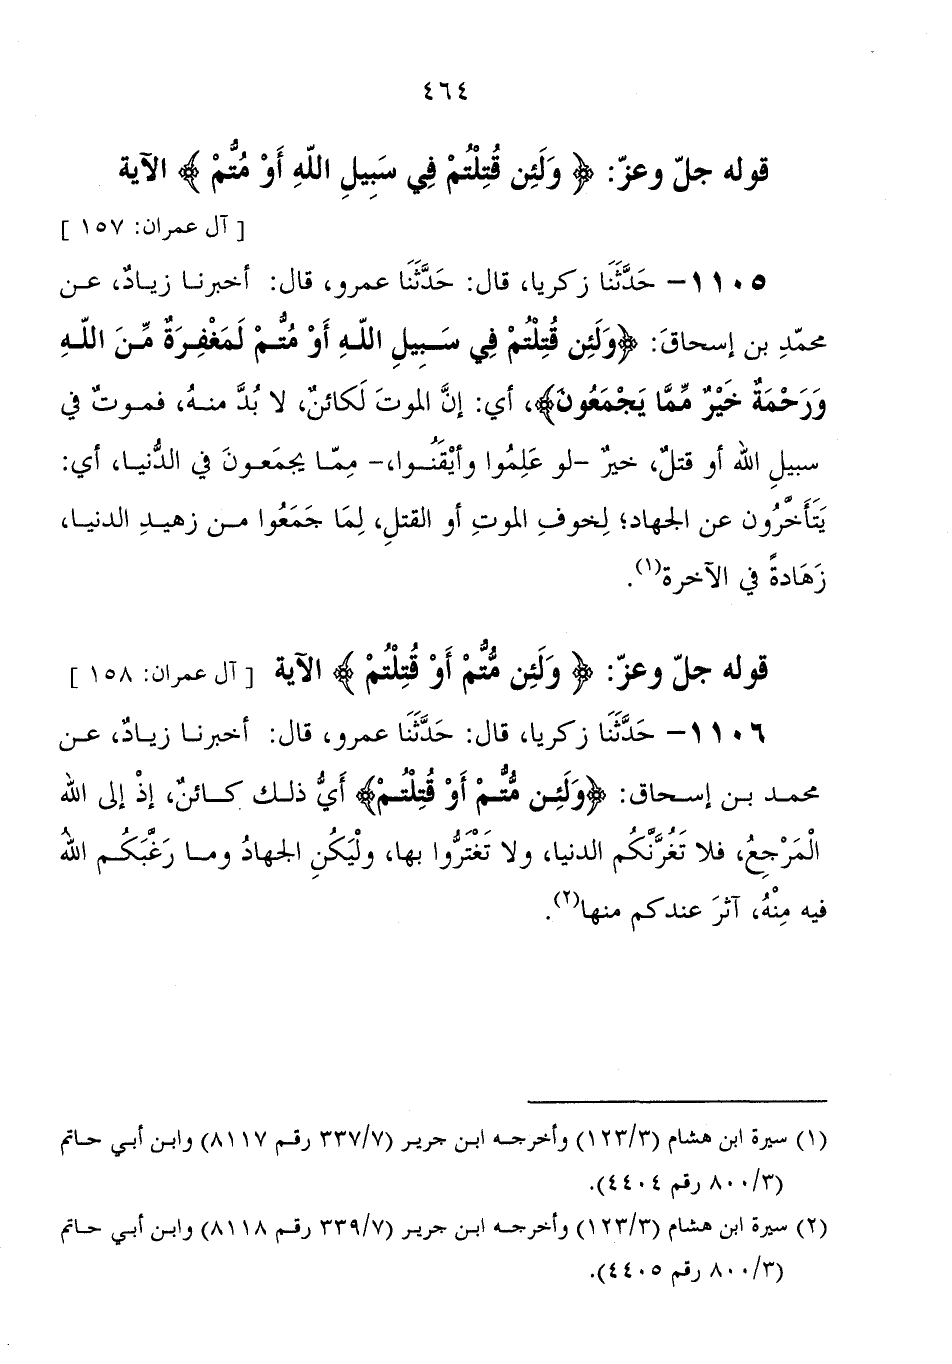 ٤٦٤
قوله جلّ وعزّ: ﴿ وَلَئِن قُتِلْتُمْ فِي سَبِيلِ اللَّهِ أَوْ مُتُّمْ ﴾ الآية
[ آل عمران: ١٥٧ ]
١١٠٥- حَدَّثَنَا زكريا، قال: حَدَّثَنَا عمرو، قال: أخبرنا زيادٌ، عن
محمّدِ بن إسحاقَ: ﴿وَلَئِن قُتِلْتُمْ فِي سَبِيلِ اللَّهِ أَوْ مُتُّمْ لَمَغْفِرَةٌ مِّنَ اللَّهِ
وَرَحْمَةٌ خَيْرٌ مِّمَّا يَجْمَعُونَ﴾، أي: إنَّ الموتَ لَكائنٌ، لا بُدَّ منهُ، فموتٌ في
سبيلِ الله أو قتلٌ، خيرٌ -لو عَلِمُوا وأيْقَنُوا،- مِمّا يجمَعونَ في الدُّنيا، أي:
يَتَأَخَّرُون عن الجهاد؛ لِخوفِ الموتِ أو القتلِ، لِمَا جَمَعُوا من زهيدِ الدنيا،
زَهَادةً في الآخرة(١).
قوله جلّ وعزّ: ﴿ وَلَئِن مُّتُّمْ أَوْ قُتِلْتُمْ ﴾ الآية [ آل عمران: ١٥٨ ]
١١٠٦- حَدَّثَنَا زكريا، قال: حَدَّثَنَا عمرو، قال: أخبرنا زيادٌ، عن
محمد بن إسحاق: ﴿وَلَئِن مُّتُّمْ أَوْ قُتِلْتُمْ﴾ أَيُّ ذلك كائنٌ، إذْ إلى الله
الْمَرْجِعُ، فلا تَغُرَّنَّكُم الدنيا، ولا تَغْتَرُّوا بها، ولْيَكُنِ الجهادُ وما رَغَّبَكُم اللهُ
فيه مِنْهُ، آثرَ عندكم منها(٢).
(١) سيرة ابن هشام (١٢٣/٣) وأخرجه ابن جرير (٣٣٧/٧ رقم ٨١١٧) وابن أبي حاتم
(٨٠٠/٣ رقم ٤٤٠٤).
(٢) سيرة ابن هشام (١٢٣/٣) وأخرجه ابن جرير (٣٣٩/٧ رقم ٨١١٨) وابن أبي حاتم
(٨٠٠/٣ رقم ٤٤٠٥).